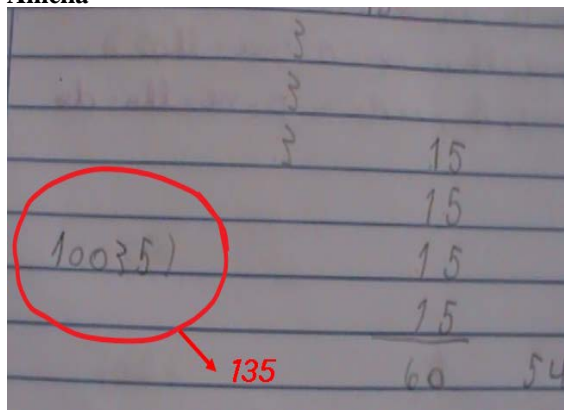 3
3
3 15
15
10035) 15
15
135 60 54